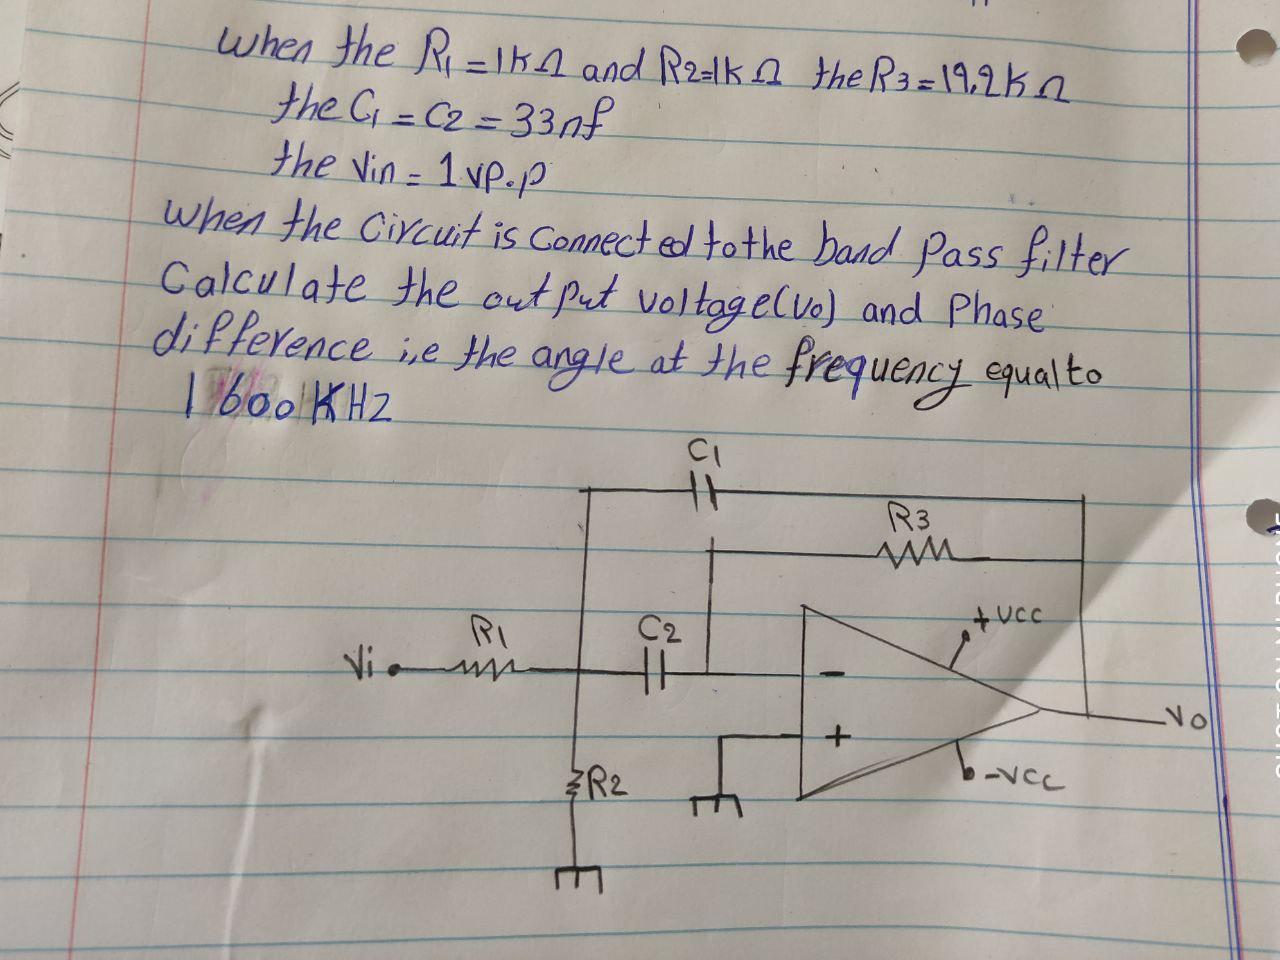 When the R1 = 1kΩ and R2=1kΩ the R3 = 19.2kΩ
the C1 = C2 = 33nf
the Vin = 1 vp.p
when the circuit is connected to the band pass filter
Calculate the out put voltage(vo) and Phase
difference i,e the angle at the frequency equal to
1600KHZ
C1
R3
+VCC
R1
C2
Vi
-
Vo
+
R2
-VCC